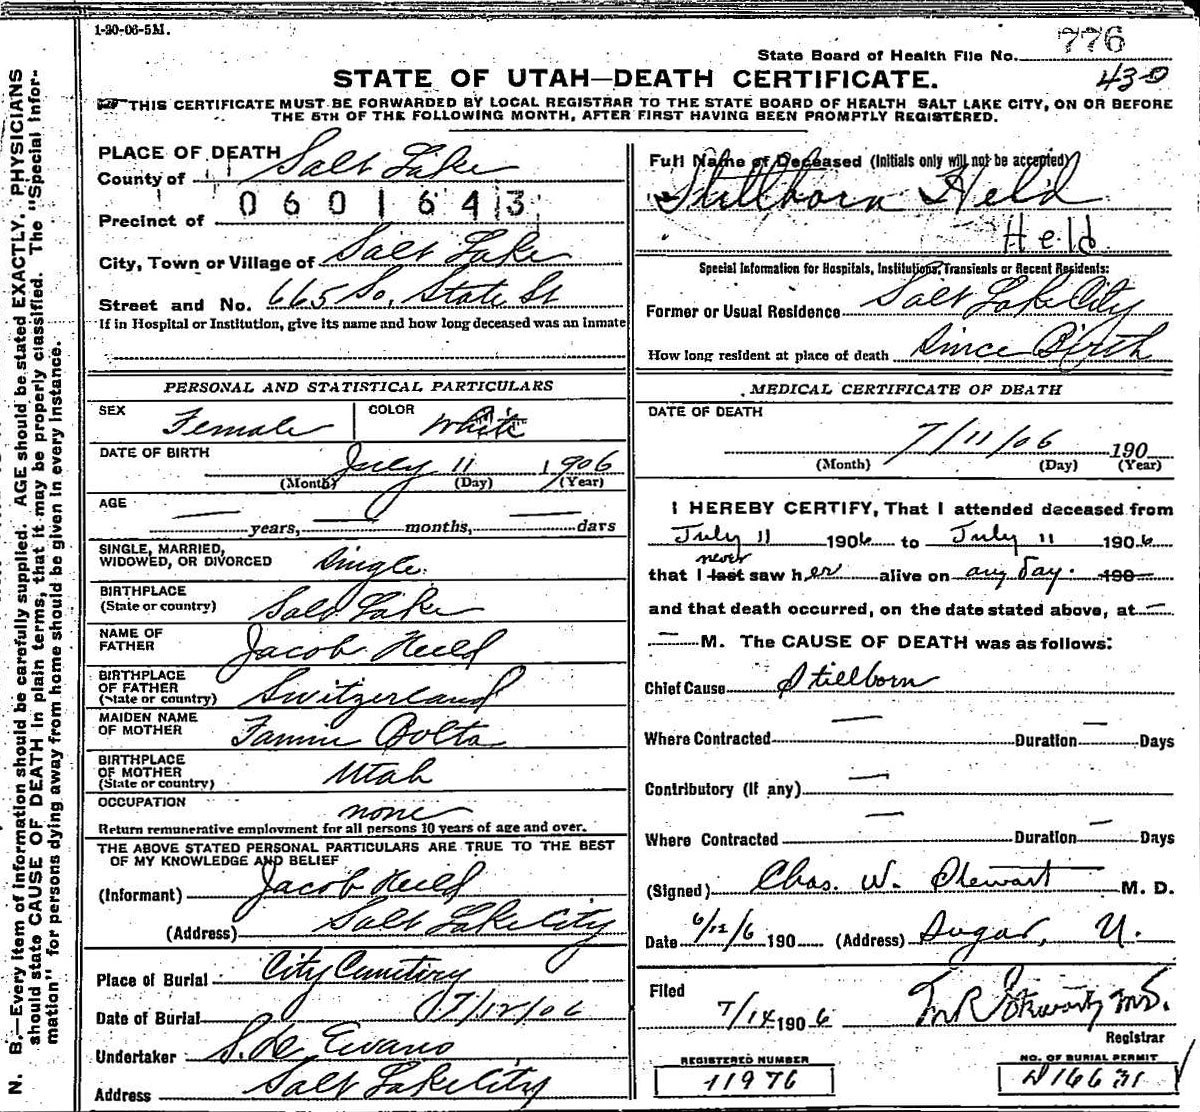 1-20-06-5M.
State Board of Health File No. 776
430
STATE OF UTAH—DEATH CERTIFICATE.
THIS CERTIFICATE MUST BE FORWARDED BY LOCAL REGISTRAR TO THE STATE BOARD OF HEALTH SALT LAKE CITY, ON OR BEFORE
THE 5TH OF THE FOLLOWING MONTH, AFTER FIRST HAVING BEEN PROMPTLY REGISTERED.
N. B.—Every item of information should be carefully supplied. AGE should be stated EXACTLY. PHYSICIANS
should state CAUSE OF DEATH in plain terms, that it may be properly classified. The "Special Infor-
mation" for persons dying away from home should be given in every instance.
PLACE OF DEATH
County of Salt Lake
0601643
Precinct of
City, Town or Village of Salt Lake
Street and No. 665 So. State St
If in Hospital or Institution, give its name and how long deceased was an inmate
PERSONAL AND STATISTICAL PARTICULARS
SEX Female COLOR White
DATE OF BIRTH July 11 1906
(Month) (Day) (Year)
AGE
— years, — months, — days
SINGLE, MARRIED,
WIDOWED, OR DIVORCED Single
BIRTHPLACE
(State or country) Salt Lake
NAME OF
FATHER Jacob Held
BIRTHPLACE
OF FATHER
(State or country) Switzerland
MAIDEN NAME
OF MOTHER Fannie Bolto
BIRTHPLACE
OF MOTHER
(State or country) Utah
OCCUPATION none
Return remunerative employment for all persons 10 years of age and over.
THE ABOVE STATED PERSONAL PARTICULARS ARE TRUE TO THE BEST
OF MY KNOWLEDGE AND BELIEF
(Informant) Jacob Held
(Address) Salt Lake City
Place of Burial City Cemetiry
Date of Burial 7/12/06
Undertaker Evans
Address Salt Lake City
Full Name of Deceased (Initials only will not be accepted)
Stillborn Held
Held
Special Information for Hospitals, Institutions, Transients or Recent Residents:
Former or Usual Residence Salt Lake City
How long resident at place of death Since Birth
MEDICAL CERTIFICATE OF DEATH
DATE OF DEATH
7/11/06 190
(Month) (Day) (Year)
I HEREBY CERTIFY, That I attended deceased from
July 11 1906 to July 11 1906
never
that I last saw her alive on any day. 190
and that death occurred, on the date stated above, at —
— M. The CAUSE OF DEATH was as follows:
Chief Cause Stillborn
Where Contracted — Duration — Days
Contributory (If any) —
Where Contracted — Duration — Days
(Signed) Chas. W. Stewart M. D.
Date 6/12/6 190 (Address) Sugar, U.
Filed
7/14 1906
Registrar
REGISTERED NUMBER
11976
NO. OF BURIAL PERMIT
16631